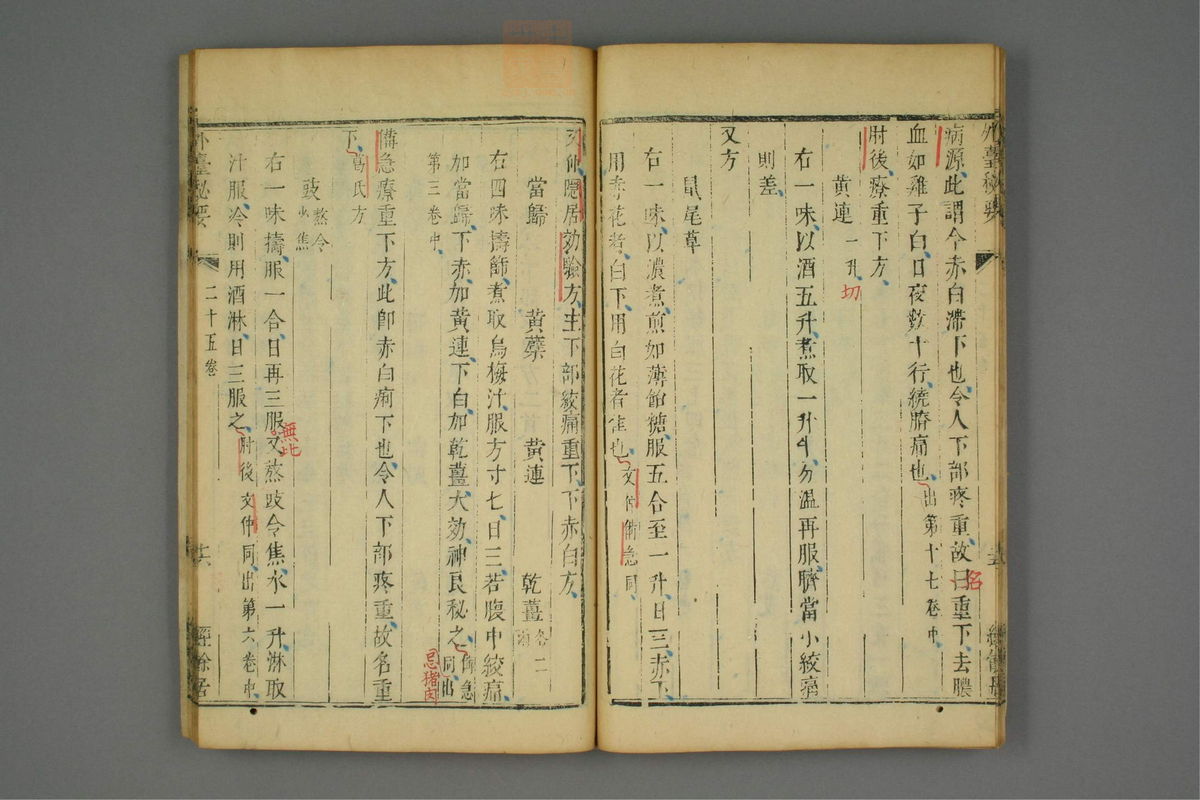 外臺秘要
病源、此謂今赤白滯下也、令人下部疼重、故曰重下、去膿
名
血如雞子白、日夜數十行、繞臍痛也、出第十七卷中
肘後、療重下方、
黃連一升、
切
右一味、以酒五升、煮取一升半、分溫再服、臍當小絞痛
則差、
又方
鼠尾草
右一味、以濃煮煎如薄飴糖、服五合至一升、日三、赤下、
用赤花者、白下、用白花者佳也、文仲備急同、
文仲隱居効驗方、主下部絞痛重下、下赤白方、
當歸 黃蘗 黃連 乾薑各二兩
右四味、擣篩、煮取烏梅汁、服方寸匕、日三、若腹中絞痛、
加當歸、下赤、加黃連、下白、加乾薑、大効、神良秘之、備急同、出
第三卷中、
忌猪肉
備急療重下方、此卽赤白痢下也、令人下部疼重、故名重
下、葛氏方
豉熬令少焦
右一味、擣、服一合、日再三服、又熬豉令焦、水一升、淋取
無此
汁服、冷則用酒淋、日三服之、肘後文仲同、出第六卷中、
外臺秘要 二十五卷 十六 經餘居